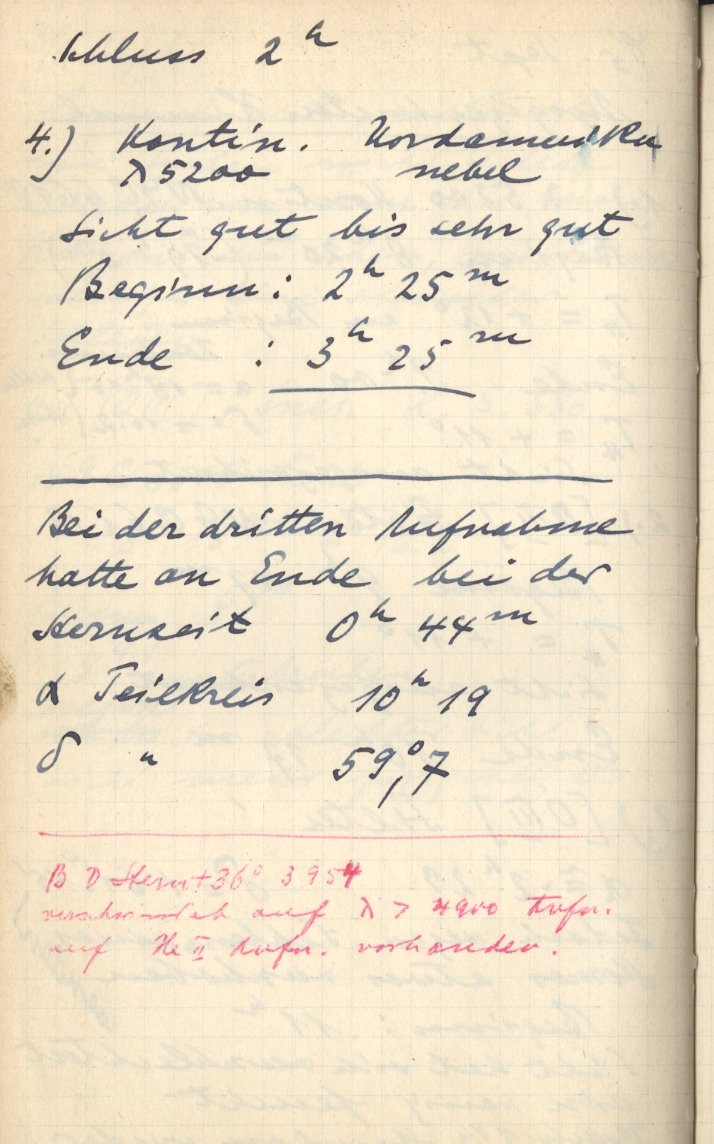 Schluss 2ʰ
4.) Kontin. Nordamerika
λ 5200 nebel
Sicht gut bis sehr gut
Beginn : 2ʰ 25ᵐ
Ende : 3ʰ 25ᵐ
Bei der dritten Aufnahme
hatte an Ende bei der
Sternzeit 0ʰ 44ᵐ
α Teilkreis 10ʰ 19
δ " 59°,7
B D Stern + 36° 3954
verschwindet auf λ > 4900 Aufn.
auf He II Aufn. vorhanden.